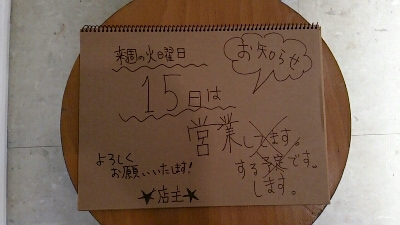 お知らせ
来週の火曜日
15日は
営業してます。
する予定です。
します。
よろしく
お願いいたします!
★店主★